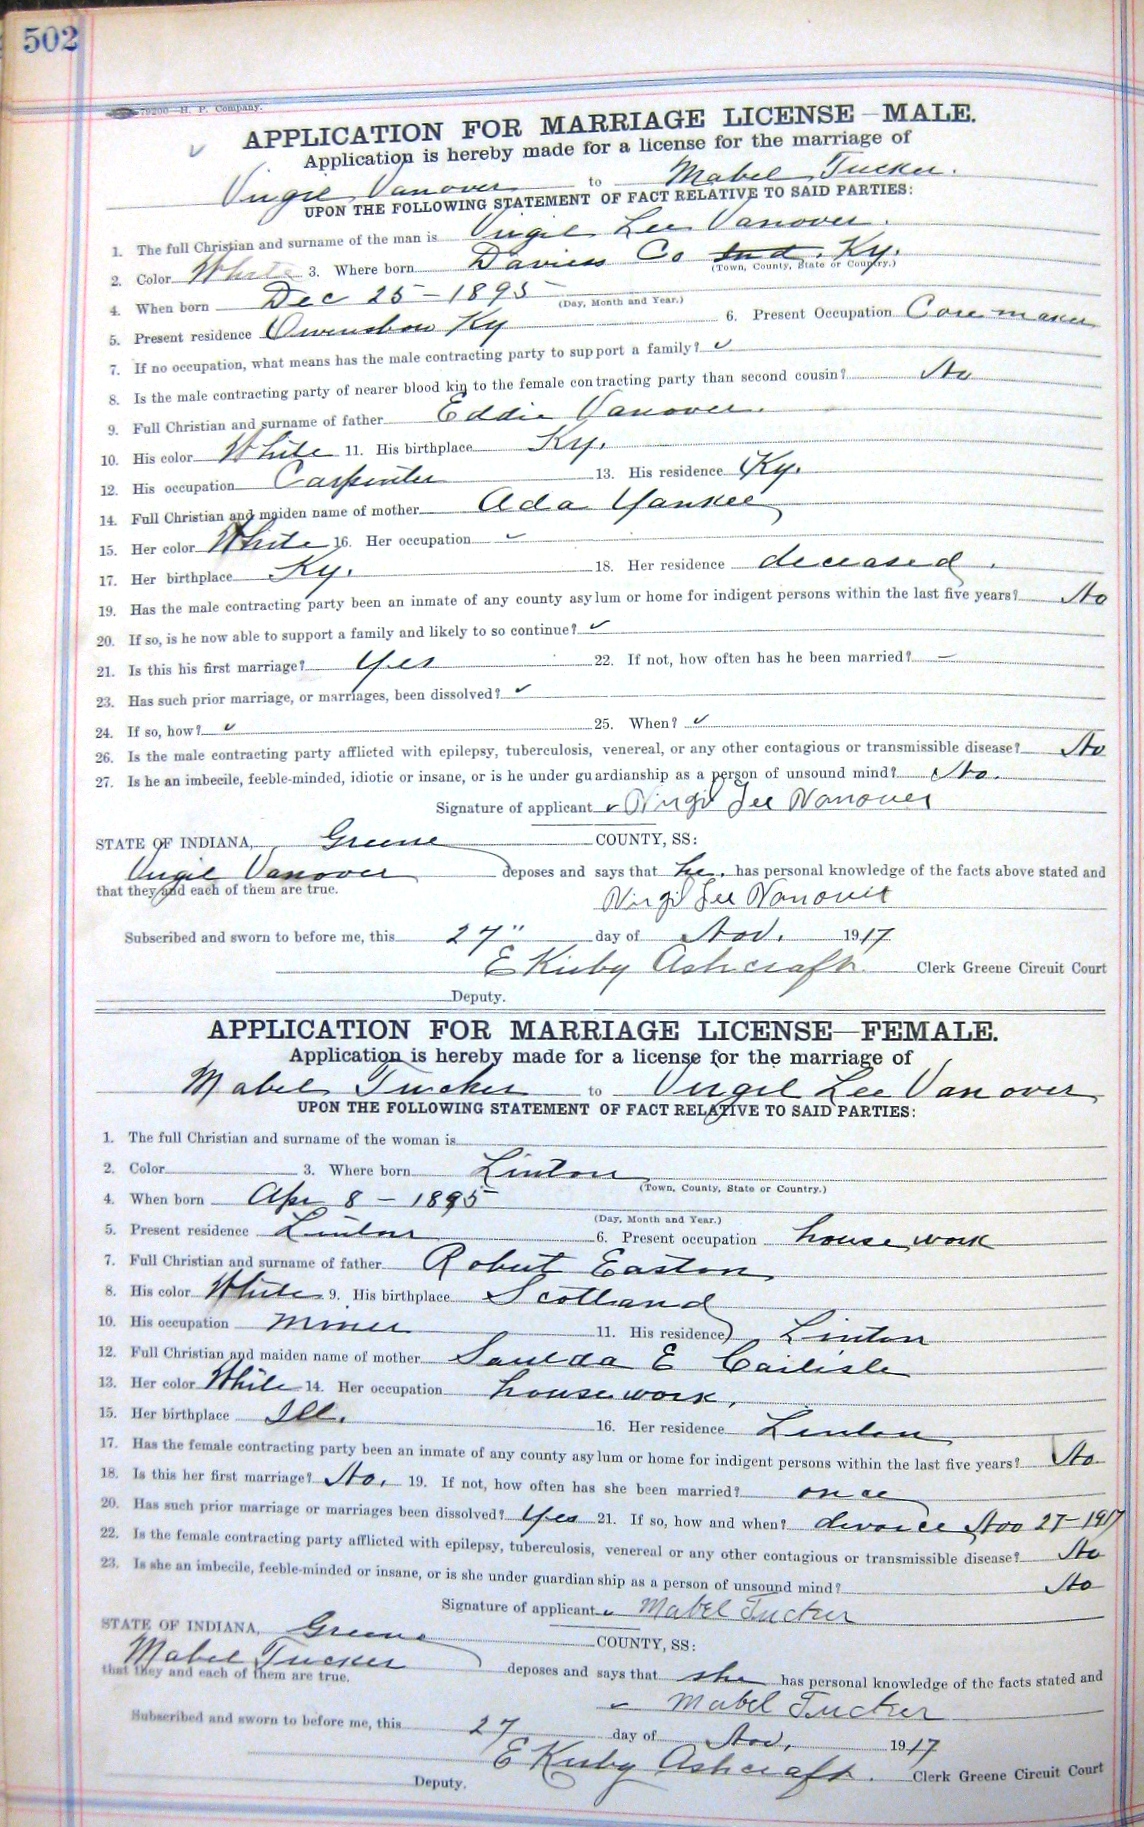 502
79200—H. P. Company.
APPLICATION FOR MARRIAGE LICENSE—MALE.
Application is hereby made for a license for the marriage of
Virgil Vanover to Mabel Tucker.
UPON THE FOLLOWING STATEMENT OF FACT RELATIVE TO SAID PARTIES:
1. The full Christian and surname of the man is Virgil Lee Vanover.
2. Color White 3. Where born Daviess Co Ind. Ky.
(Town, County, State or Country.)
4. When born Dec 25-1895
(Day, Month and Year.)
5. Present residence Owensboro Ky 6. Present Occupation Core maker
7. If no occupation, what means has the male contracting party to support a family? ✓
8. Is the male contracting party of nearer blood kin to the female contracting party than second cousin? No
9. Full Christian and surname of father Eddie Vanover.
10. His color White 11. His birthplace Ky.
12. His occupation Carpenter 13. His residence Ky.
14. Full Christian and maiden name of mother Ada Yankee
15. Her color White 16. Her occupation ✓
17. Her birthplace Ky. 18. Her residence deceased.
19. Has the male contracting party been an inmate of any county asylum or home for indigent persons within the last five years? No
20. If so, is he now able to support a family and likely to so continue? ✓
21. Is this his first marriage? Yes 22. If not, how often has he been married? —
23. Has such prior marriage, or marriages, been dissolved? ✓
24. If so, how? ✓ 25. When? ✓
26. Is the male contracting party afflicted with epilepsy, tuberculosis, venereal, or any other contagious or transmissible disease? No
27. Is he an imbecile, feeble-minded, idiotic or insane, or is he under guardianship as a person of unsound mind? No.
Signature of applicant ✓ Virgil Lee Vanover
STATE OF INDIANA, Greene COUNTY, SS:
Virgil Vanover deposes and says that he has personal knowledge of the facts above stated and
that they and each of them are true.
Virgil Lee Vanover
Subscribed and sworn to before me, this 27" day of Nov. 1917
E Kirby Ashcraft Clerk Greene Circuit Court
Deputy.
APPLICATION FOR MARRIAGE LICENSE—FEMALE.
Application is hereby made for a license for the marriage of
Mabel Tucker to Virgil Lee Vanover
UPON THE FOLLOWING STATEMENT OF FACT RELATIVE TO SAID PARTIES:
1. The full Christian and surname of the woman is
2. Color 3. Where born Linton
(Town, County, State or Country.)
4. When born Apr 8 - 1895
(Day, Month and Year.)
5. Present residence Linton 6. Present occupation house work
7. Full Christian and surname of father Robert Easton
8. His color White 9. His birthplace Scotland
10. His occupation Miner 11. His residence Linton
12. Full Christian and maiden name of mother E Carlisle
13. Her color White 14. Her occupation housework,
15. Her birthplace Ill. 16. Her residence Linton
17. Has the female contracting party been an inmate of any county asylum or home for indigent persons within the last five years? No
18. Is this her first marriage? No. 19. If not, how often has she been married? once
20. Has such prior marriage or marriages been dissolved? Yes 21. If so, how and when? divorce Nov 27-1917
22. Is the female contracting party afflicted with epilepsy, tuberculosis, venereal or any other contagious or transmissible disease? No
23. Is she an imbecile, feeble-minded or insane, or is she under guardianship as a person of unsound mind? No
Signature of applicant ✓ Mabel Tucker
STATE OF INDIANA, Greene COUNTY, SS:
Mabel Tucker deposes and says that she has personal knowledge of the facts stated and
that they and each of them are true.
✓ Mabel Tucker
Subscribed and sworn to before me, this 27 day of Nov. 1917
E Kirby Ashcraft. Clerk Greene Circuit Court
Deputy.